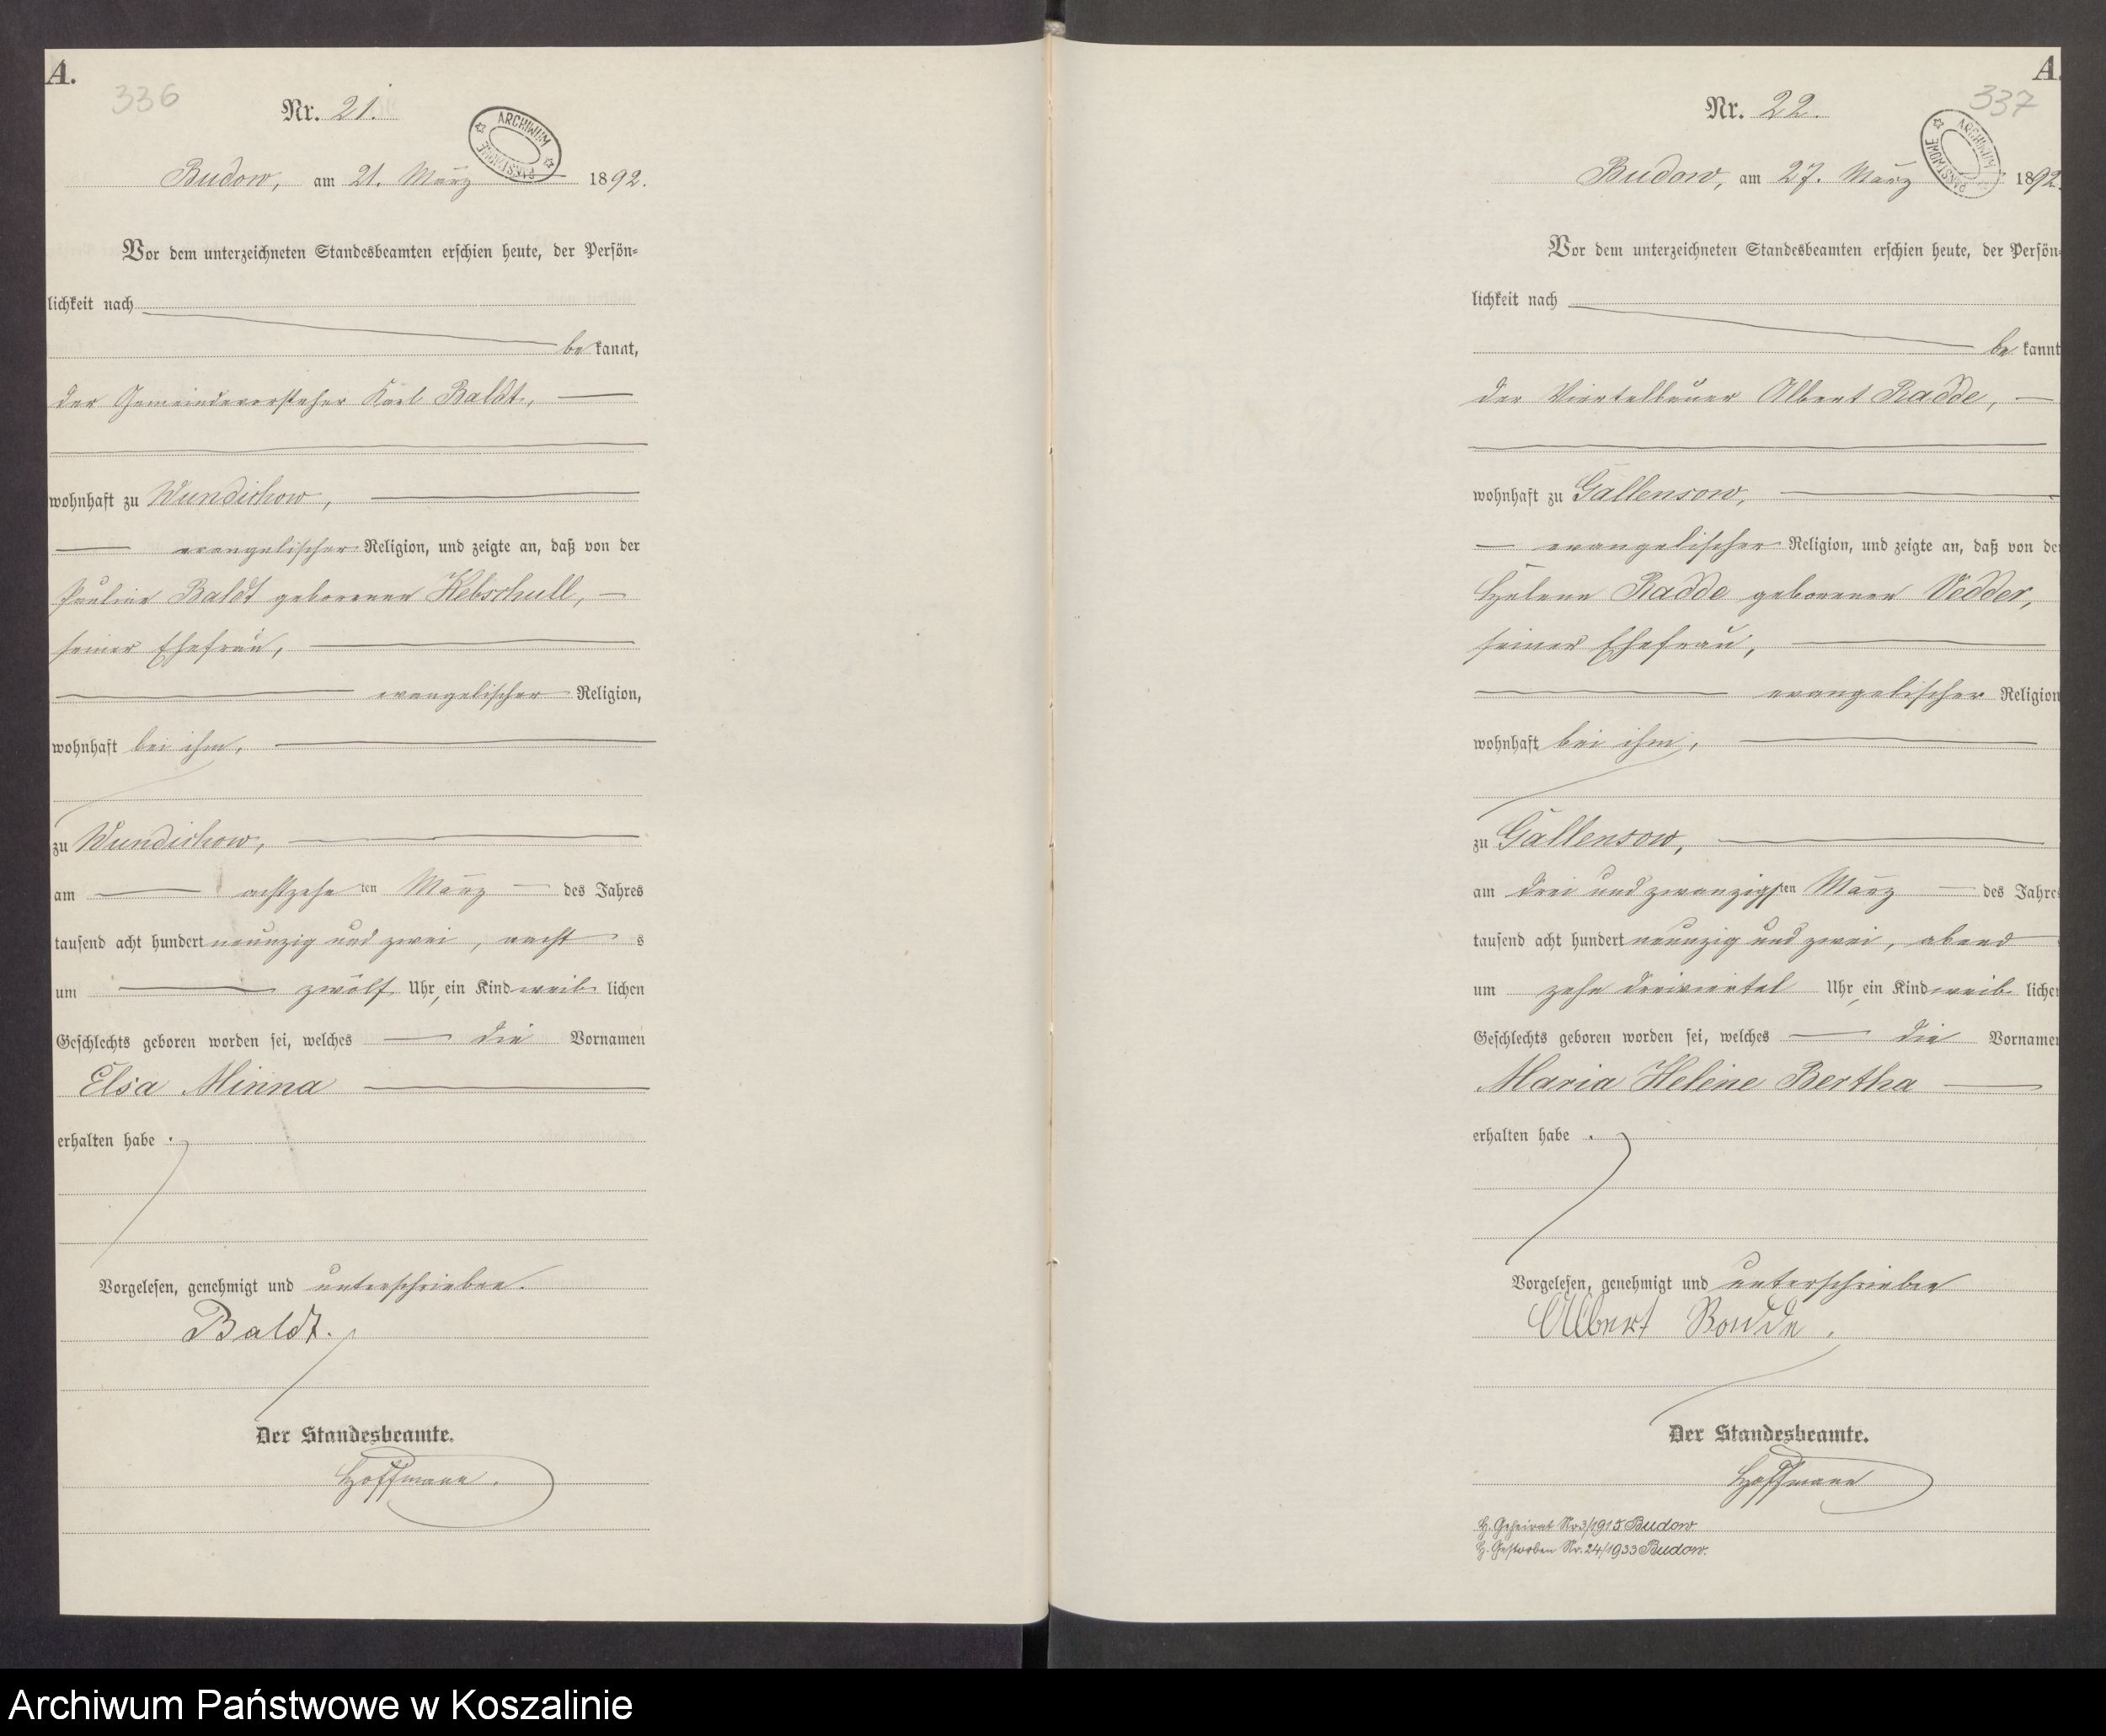 A.
336
Nr. 21.
ARCHIWUM PAŃSTWOWE
Budow, am 21. März 1892.
Vor dem unterzeichneten Standesbeamten erschien heute, der Persön=
lichkeit nach
be kannt,
der Gemeindevorsteher Karl Baldt,
wohnhaft zu Wundichow,
evangelischer Religion, und zeigte an, daß von der
Pauline Baldt geborenen Kebschull,
seiner Ehefrau,
evangelischer Religion,
wohnhaft bei ihm,
zu Wundichow,
am achtzehn ten März des Jahres
tausend acht hundert neunzig und zwei, nacht s
um zwölf Uhr, ein Kind weib lichen
Geschlechts geboren worden sei, welches die Vornamen
Elsa Minna
erhalten habe.
Vorgelesen, genehmigt und unterschrieben.
Baldt.
Der Standesbeamte.
Hoffmann.
A.
337
Nr. 22.
ARCHIWUM PAŃSTWOWE
Budow, am 27. März 1892.
Vor dem unterzeichneten Standesbeamten erschien heute, der Persön=
lichkeit nach
be kannt
der Viertelbauer Albert Radde,
wohnhaft zu Gallensow,
evangelischer Religion, und zeigte an, daß von der
Helene Radde geborenen Vedder,
seiner Ehefrau,
evangelischer Religion
wohnhaft bei ihm,
zu Gallensow,
am drei und zwanzigsten März des Jahres
tausend acht hundert neunzig und zwei, abend
um zehn dreiviertel Uhr, ein Kind weib lichen
Geschlechts geboren worden sei, welches die Vornamen
Maria Helene Bertha
erhalten habe.
Vorgelesen, genehmigt und unterschrieben
Albert Radde.
Der Standesbeamte.
Hoffmann
H. Geheirat Nr 3/1915 Budow.
H. Gestorben Nr. 24/1933 Budow.
Archiwum Państwowe w Koszalinie